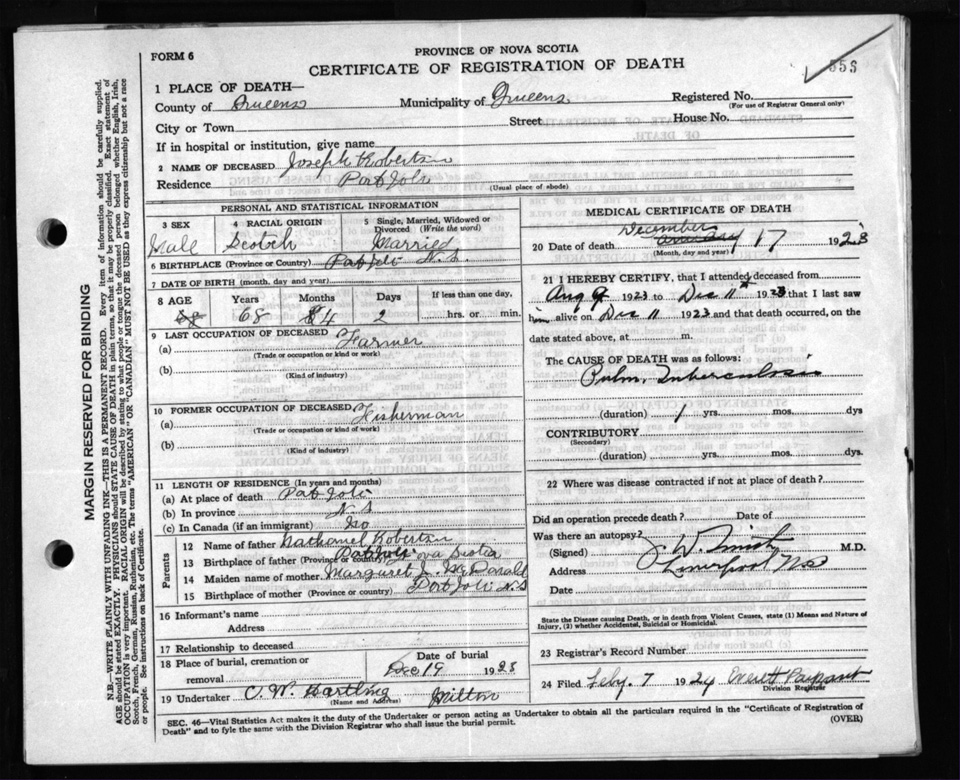 FORM 6
PROVINCE OF NOVA SCOTIA
CERTIFICATE OF REGISTRATION OF DEATH
1 PLACE OF DEATH—
County of Queens Municipality of Queens Registered No.
(For use of Registrar General only)
City or Town Street House No.
If in hospital or institution, give name
2 NAME OF DECEASED Joseph Robertson
Residence Port Joli (Usual place of abode)
PERSONAL AND STATISTICAL INFORMATION
3 SEX 4 RACIAL ORIGIN 5 Single, Married, Widowed or Divorced (Write the word)
Male Scotch Married
6 BIRTHPLACE (Province or Country) Port Joli N.S.
7 DATE OF BIRTH (month, day and year)
8 AGE Years Months Days If less than one day,
68 4 2 hrs. or min.
9 LAST OCCUPATION OF DECEASED Farmer
(a) (Trade or occupation or kind or work)
(b) (Kind of industry)
10 FORMER OCCUPATION OF DECEASED Fisherman
(a) (Trade or occupation or kind of work)
(b) (Kind of industry)
11 LENGTH OF RESIDENCE (In years and months)
(a) At place of death Port Joli
(b) In province N.S
(c) In Canada (if an immigrant)
Parents
12 Name of father Nathaniel Robertson
13 Birthplace of father (Province or country) ova Scotia
14 Maiden name of mother Margaret J. McDonald
15 Birthplace of mother (Province or country) Port Joli N.S
16 Informant's name
Address
17 Relationship to deceased
18 Place of burial, cremation or removal Date of burial
Dec 19 1923
19 Undertaker C. W. Bartling Milton
(Name and Address)
MEDICAL CERTIFICATE OF DEATH
20 Date of death December 17 1923
(Month, day and year)
21 I HEREBY CERTIFY, that I attended deceased from
Aug 9 1923 to Dec 11 1923 that I last saw
him alive on Dec 11 1923 and that death occurred, on the
date stated above, at m.
The CAUSE OF DEATH was as follows:
Pulm. Tuberculosis
(duration) 1 yrs. mos. dys
CONTRIBUTORY
(Secondary)
(duration) yrs. mos. dys
22 Where was disease contracted if not at place of death?
Did an operation precede death? Date of
Was there an autopsy?
(Signed) M.D.
Address Liverpool NS
Date
State the Disease causing Death, or in death from Violent Causes, state (1) Means and Nature of
Injury, (2) whether Accidental, Suicidal or Homicidal.
23 Registrar's Record Number
24 Filed Feby. 7 1924 Everett
Division Registrar
SEC. 46—Vital Statistics Act makes it the duty of the Undertaker or person acting as Undertaker to obtain all the particulars required in the "Certificate of Registration of
Death" and to fyle the same with the Division Registrar who shall issue the burial permit. (OVER)
MARGIN RESERVED FOR BINDING
N.B.—WRITE PLAINLY WITH UNFADING INK—THIS IS A PERMANENT RECORD. Every item of information should be carefully supplied.
AGE should be stated EXACTLY. PHYSICIANS should STATE CAUSE OF DEATH in plain terms, so that it may be properly classified. Exact statement of
OCCUPATION is very important. RACIAL ORIGIN will be described by stating to what people or tongue the deceased person belonged whether English, Irish,
Scotch, French, German, Russian, Ruthenian, etc. The terms "AMERICAN" OR "CANADIAN" MUST NOT BE USED as they express citizenship but not a race
or people. See instructions on back of Certificate.